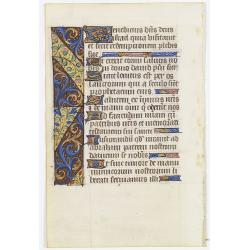 Benedictus dns deus
israel quia visitavit
et fecit redemptionem plebis
sue
Et erexit cornu salutis no
in domo david pueri sui
Sicut locutus est per os
sanctorum qui a seculo sut
prophetarum eius
Salutem ex inimicis nris
et de manu oim qui oderunt nos
Ad faciendam miam cu
patribus nris et memorari
testamenti sui sancti
Iusiurandum qd iuravit ad
abraham patrem nostrum
daturum se nobis
Ut sine timore de manu
inimicorum nostrorum li
berati serviamus illi